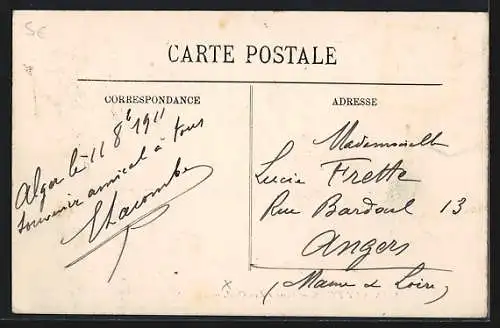 5c
CARTE POSTALE
CORRESPONDANCE
Alger le 11 8b 1911
souvenir amical à tous
Lacombe
ADRESSE
Mademoiselle
Lucie Frette
Rue Bardoul 13
Angers
(Maine & Loire)
x